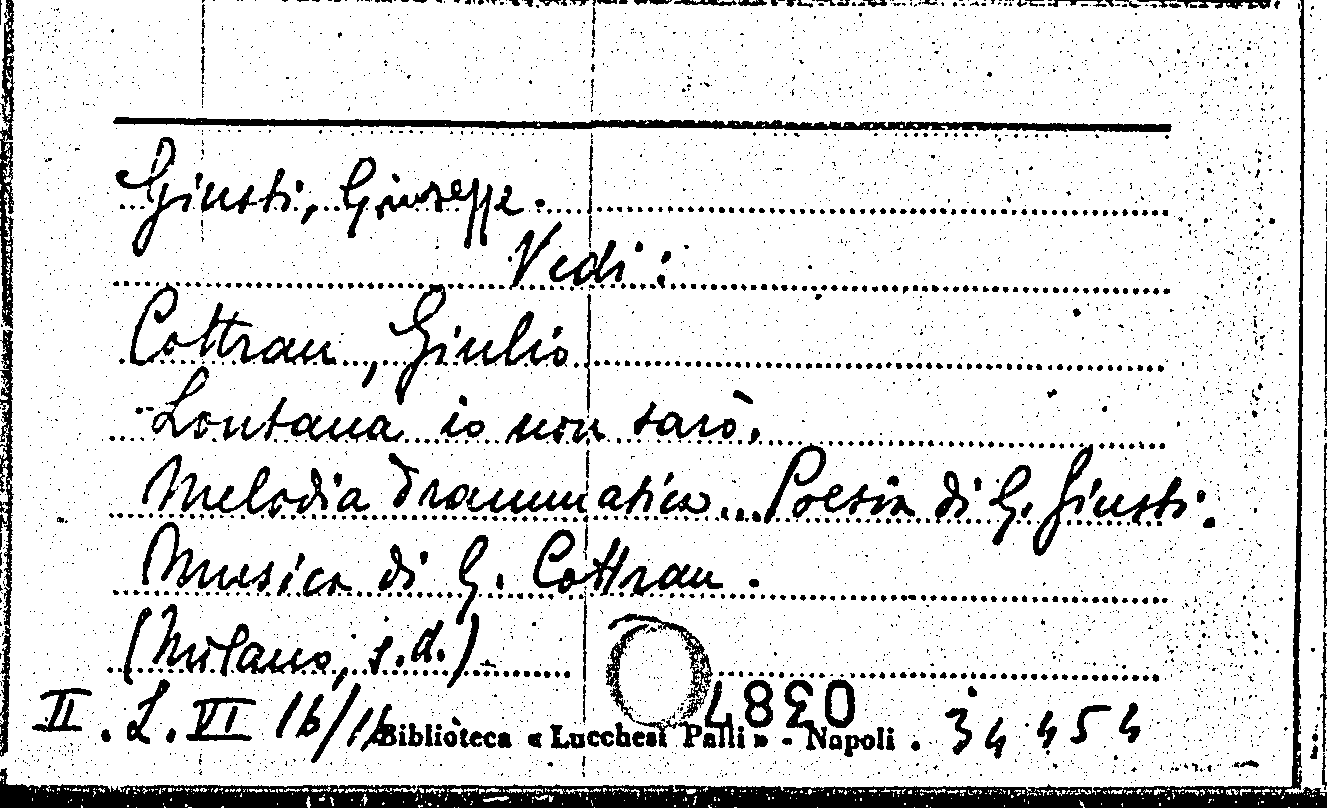 Giusti, Giuseppe.
Vedi :
Cottrau, Giulio
Lontana io non sarò.
Melodia drammatica... Poesia di G. Giusti.
Musica di G. Cottrau.
(Milano, s.d.)
0387
II. L. VI 16/16 Biblioteca « Lucchesi Palli » - Napoli . 34454